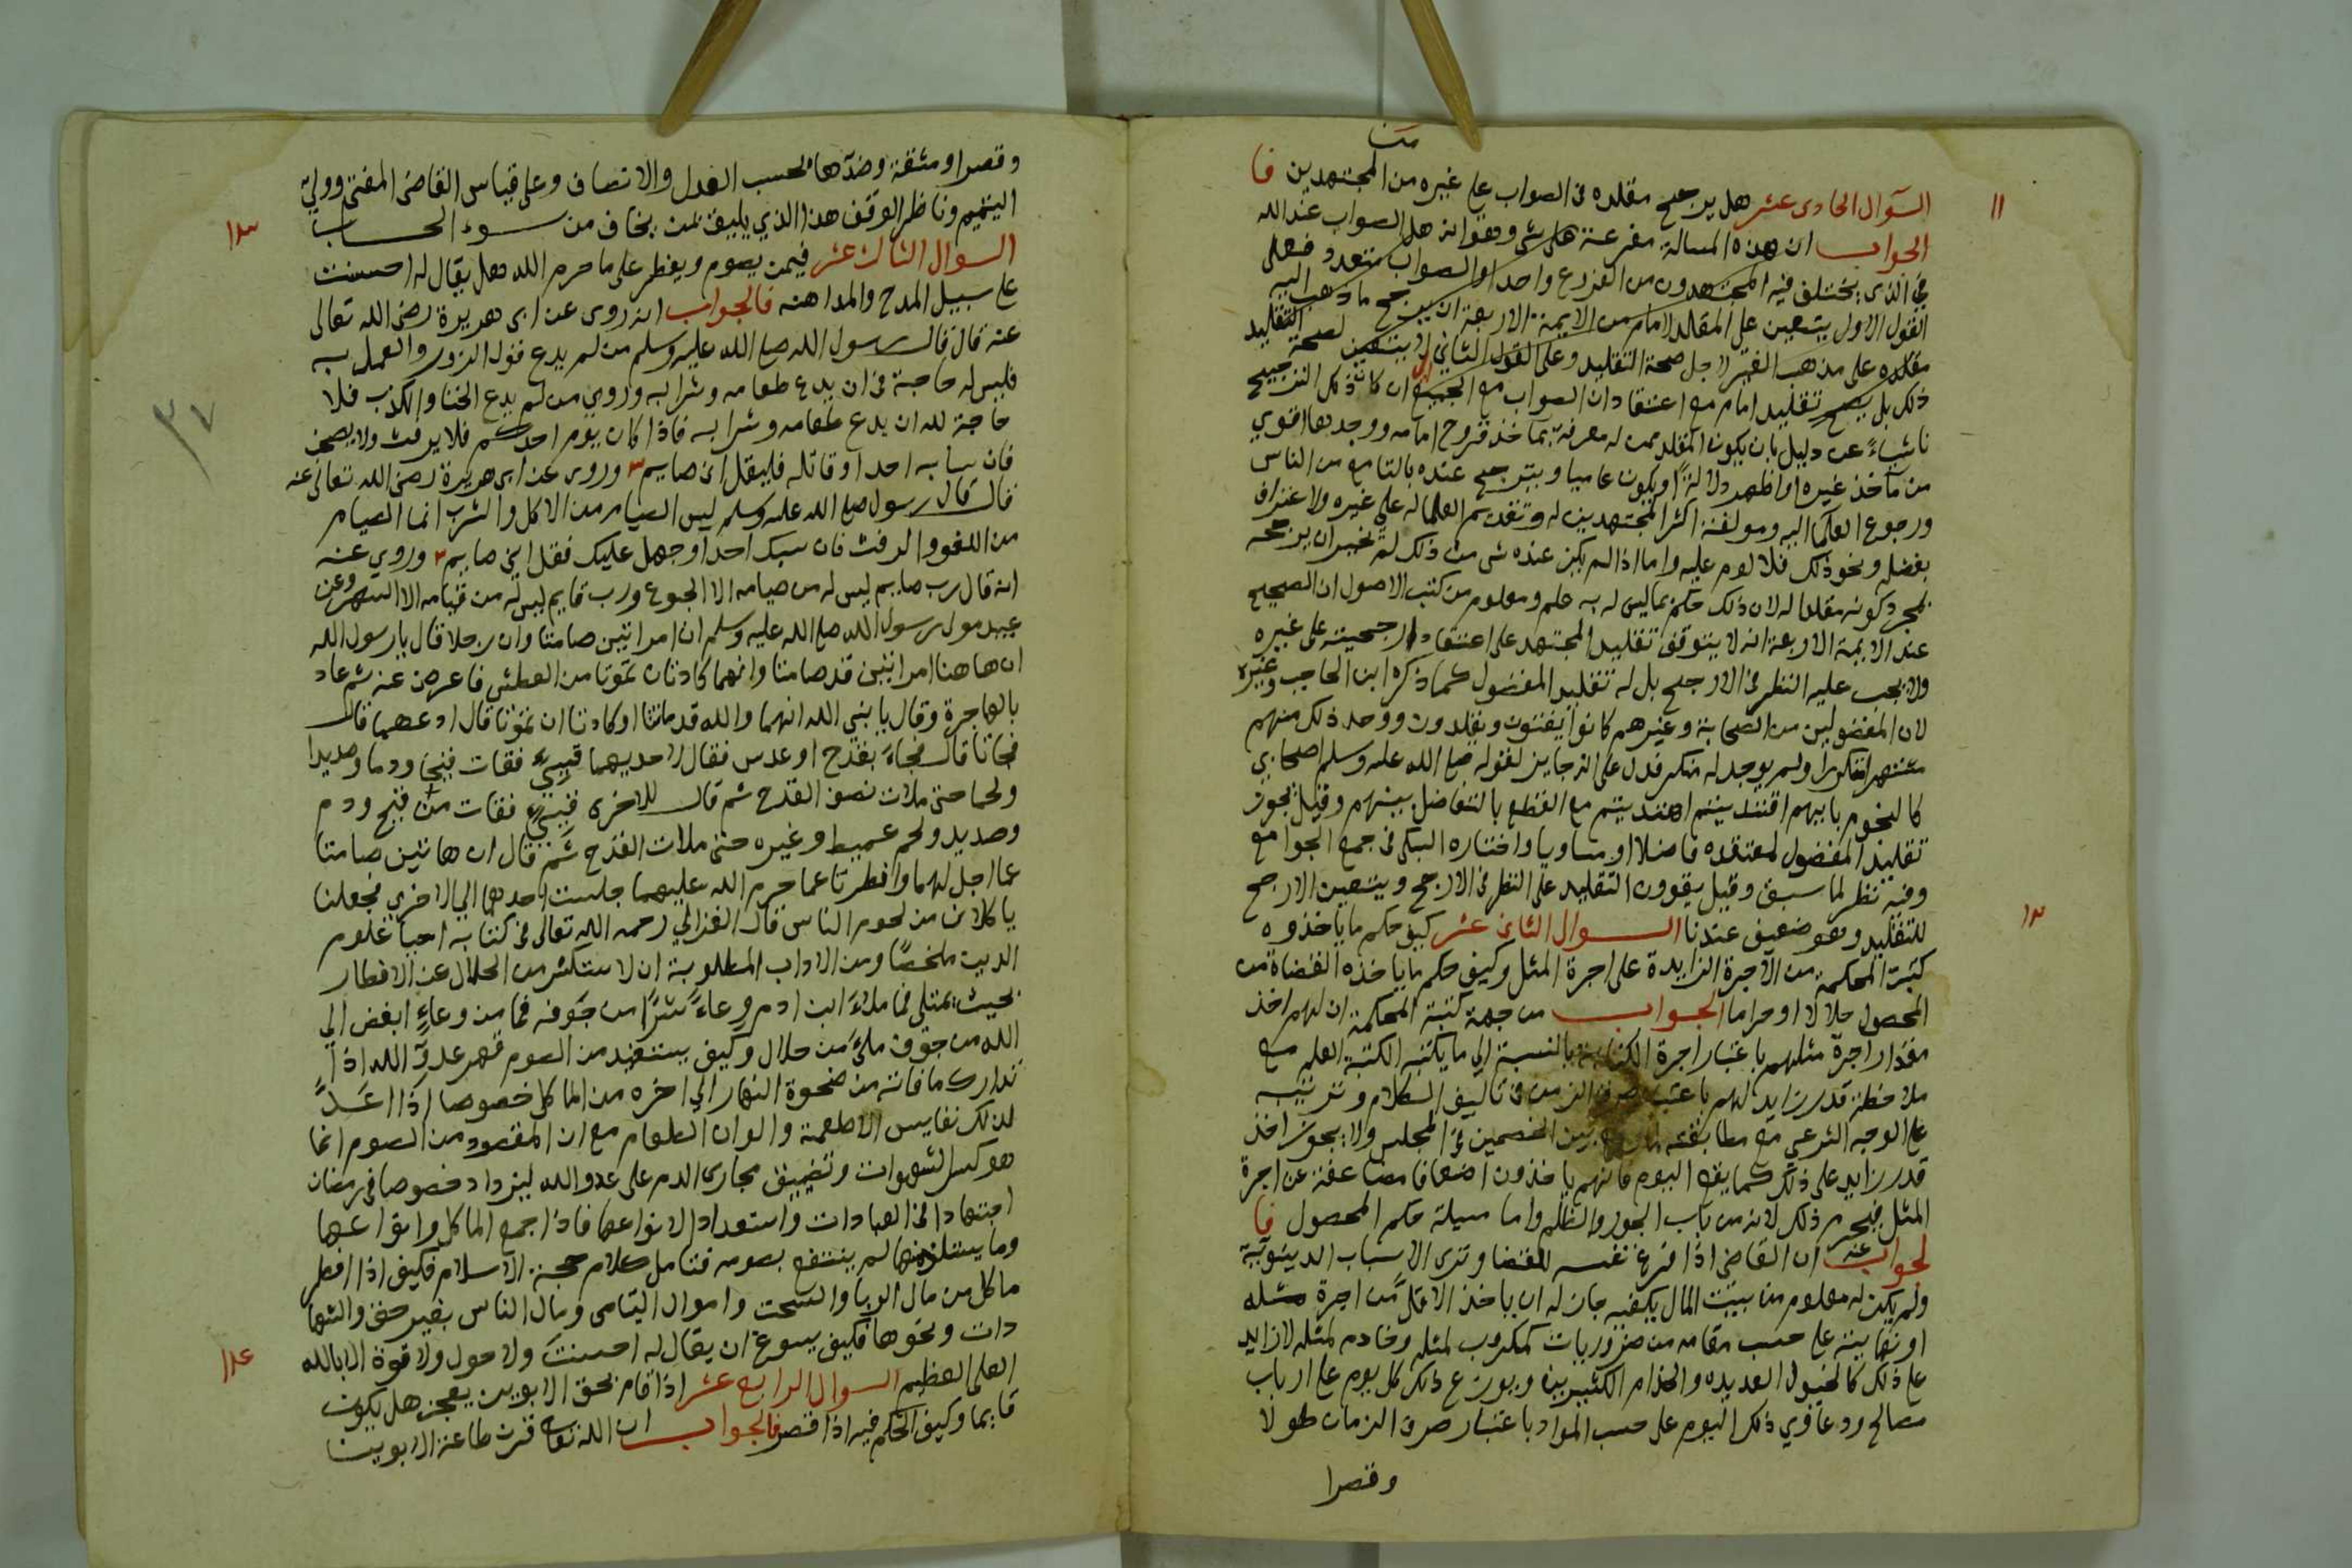 متن
السؤال الحادى عشر هل يرجح مقلده فى الصواب على غيره من المجتهدين فا
١١
الجواب ان هذه المسالة مفرعة على شى وهو انه هل الصواب عند الله
فى الذى يختلف فيه المجتهدون من الفروع واحد او الصواب متعدد فعلى
القول الاول يتعين على المقلد لامام من الايمة الاربعة ان يرجح ما ذهب اليه
مقلده على مذهب الغير لاجل صحة التقليد وعلى القول الثاني لا يتعين لصحة التقليد
ذلك بل يصح تقليد امام مع اعتقاد ان الصواب مع الجميع ان كان ذلك الترجيح
ناشياً عن دليل بان يكون المقلد ممن له معرفة بماخذ فروح امامه ووجدها اقوي
من ماخذ غيره او اظهر دلالة او يكون عاميا ويترجح عنده بالتسامع من الناس
ورجوع العلما اليه وموافقة اكثر المجتهدين له وتقديم العلما له على غيره ولاعتراف
بفضله ونحو ذلك فلا لوم عليه واما اذا لم يكن عنده شى من ذلك لم يخير ان يرجحه
بمجرد كونه مقلدا له لان ذلك حكم بما ليس له به علم ومعلوم من كتب الاصول ان الصحيح
عند الايمة الاربعة انه لا يتوقف تقليد المجتهد على اعتقاد ارجحيته على غيره
ولا يجب عليه النظر فى الارجح بل له تقليد المفضول كما ذكره ابن الحاجب وغيره
لان المفضولين من الصحابة وغيرهم كانوا يفتون ويقلدون ووجد ذلك منهم
مشتهرا متكررا ولم يوجد له منكر فدل على انه جايز لقوله صلى الله عليه وسلم اصحابي
كالنجوم بايهم اقتديتم اهتديتم مع القطع بالتفاضل بينهم وقيل يجوز
تقليد المفضول لمعتقده فاضلا او مساويا واختاره السبكى فى جمع الجوامع
وفيه نظر لما سبق وقيل يقوون التقليد على النظر فى الارجح ويتعين الارجح
للتقليد وهو ضعيف عندنا السوال الثانى عشر كيف حكم ما ياخذوه
١٢
كتبة المحكمة من الاجرة الزايدة على اجرة المثل وكيف حكم ما ياخذه القضاة من
المحصول حلالا او حراما الجواب من جهة كتبة المحكمة ان لهم اخذ
مقدار اجرة مثلهم باعتبار اجرة الكتابة بالنسبة الى ما يكتبه الكتبة العلم مع
ملاحظة قدر زايد لهم باعتبار صرف الزمن فى تاليف الكلام وترتيبه
على الوجه الشرعي مع مطابقته بين الخصمين فى المجلس ولا يجوز اخذ
قدر زايد على ذلك كما يقع اليوم فانهم ياخذون اضعافا مضاعفة عن اجرة
المثل فيحرم ذلك لانه من باب الجور والظلم واما مسيلة حكم المحصول فا
لجواب عنه ان القاضى اذا فرغ نفسه للقضا وترك الاسباب الدينوية
ولم يكن له معلوم من بيت المال يكفيه جاز له ان ياخذ الاقل من اجرة مثله
او كفايته على حسب مقامه من ضروريات كمكروب لمثله وخادم لمثله لا زايد
على ذلك كالخيول العديدة والخدام الكثيرين ويوزع ذلك كل يوم على ارباب
مصالح ودعاوي ذلك اليوم على حسب المواد باعتبار صرف الزمان طولا
وقصرا
وقصرا ومشقة وضدها بحسب العدل والانصاف وعلى قياس القاضى المفتى وولي
اليتيم وناظر الوقف هذا الذي يليق بمن يخاف من سوء الحساب
١٣
السوال الثالث عشر فيمن يصوم ويفطر على ما حرم الله هل يقال له احسنت
على سبيل المدح والمداهنه فالجواب انه روى عن ابى هريرة رضى الله تعالى
عنه قال قال رسول الله صلى الله عليه وسلم من لم يدع قول الزور والعمل به
فليس لله حاجة فى ان يدع طعامه وشرابه وروي من لم يدع الخنا والكذب فلا
حاجة لله ان يدع طعامه وشرابه فاذا كان يوم احدكم فلا يرفث ولا يصخب
٣٧
فان سابه احد او قاتله فليقل انى صايم وروى عن ابى هريرة رضى الله تعالى عنه
قال قال رسول صلى الله عليه وسلم ليس الصيام من الاكل والشرب انما الصيام
من اللغو والرفث فان سبك احد او جهل عليك فقل انى صايم وروي عنه
انه قال رب صايم ليس له من صيامه الا الجوع ورب قايم ليس له من قيامه الا السهر وعن
عبيد مولى رسول الله صلى الله عليه وسلم ان امراتين صامتا وان رجلا قال يا رسول الله
ان هاهنا امراتين قد صامتا وانهما كادتان تموتا من العطش فاعرض عنه ثم عاد
بالهاجرة وقال يا نبي الله انهما والله قد ماتتا او كادتا ان تموتا قال ادعهما قال
فجاتا قال فجاء بقدح او عدس فقال لاحديهما قييي فقات قيحا ودما وصديدا
ولحما حتى ملات نصف القدح ثم قال للاخرى قييي فقات من قيح ودم
وصديد ولحم عبيط وغيره حتى ملات القدح ثم قال ان هاتين صامتا
عما احل لهما وافطرتا عما حرم الله عليهما جلست احديهما الي الاخري فجعلتا
ياكلان من لحوم الناس قال الغزالي رحمه الله تعالى فى كتابه احيا علوم
الدين ملخصًا ومن الاداب المطلوبة ان لا يستكثر من الحلال عند الافطار
بحيث يمتلى فما ملاء ابن ادم وعاءً شرًا من جوفه فما من وعاءٍ ابغض الي
الله من جوف ملئ من حلال وكيف يستفيد من الصوم قهر عدو الله اذا
تدارك ما فاته من ضحوة النهار الي اخره من الماكل خصوصا اذا اعد
لذلك نفايس الاطعمة والوان الطعام مع ان المقصود من الصوم انما
هو كسر الشهوات وتضييق مجارى الدم على عدو الله ليزداد خصوصا فى رمضان
اجتهادا فى العبادات واستعداد الانواعها فاذا جمع الماكل وانواعها
وما يستلذ منها لم ينتفع بصومه فتامل كلام حجة الاسلام فكيف اذا افطر
ماكل من مال الربا والسحت واموال اليتامى ومال الناس بغير حق والشها
دات ونحوها فكيف يسوغ ان يقال له احسنت ولا حول ولا قوة الا بالله
العلى العظيم السوال الرابع عشر اذا قام بحق الابوين يعجز هل يكون
١٤
قايما وكيف الحكم فيه اذا قصر فالجواب ان الله تعالى قرن طاعة الابوين